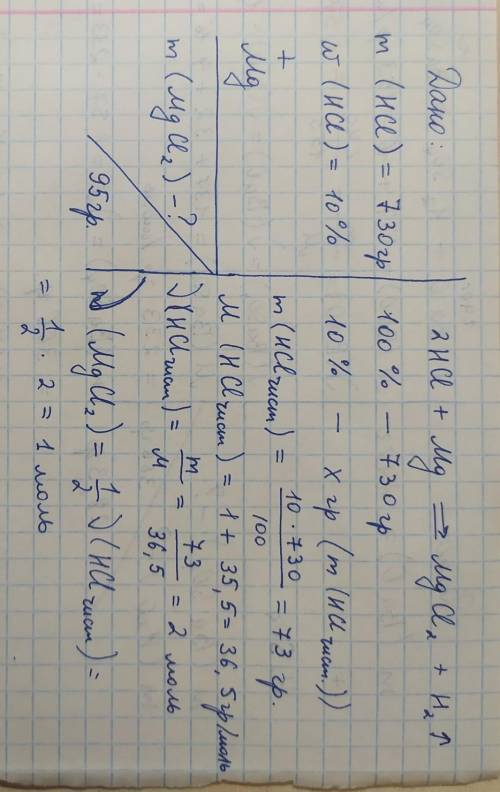 Дано:
m (HCl) = 730гр
w (HCl) = 10%
+
Mg
m (MgCl₂) - ?
95гр.
2HCl + Mg ⇒ MgCl₂ + H₂↑
100% — 730гр
10% — x гр (m (HClчист.))
m (HClчист) = 10 · 730 / 100 = 73 гр.
M (HClчист) = 1 + 35,5 = 36,5гр/моль
ν (HClчист) = m / M = 73 / 36,5 = 2 моль
ν (MgCl₂) = 1/2 ν (HClчист) =
= 1/2 · 2 = 1 моль